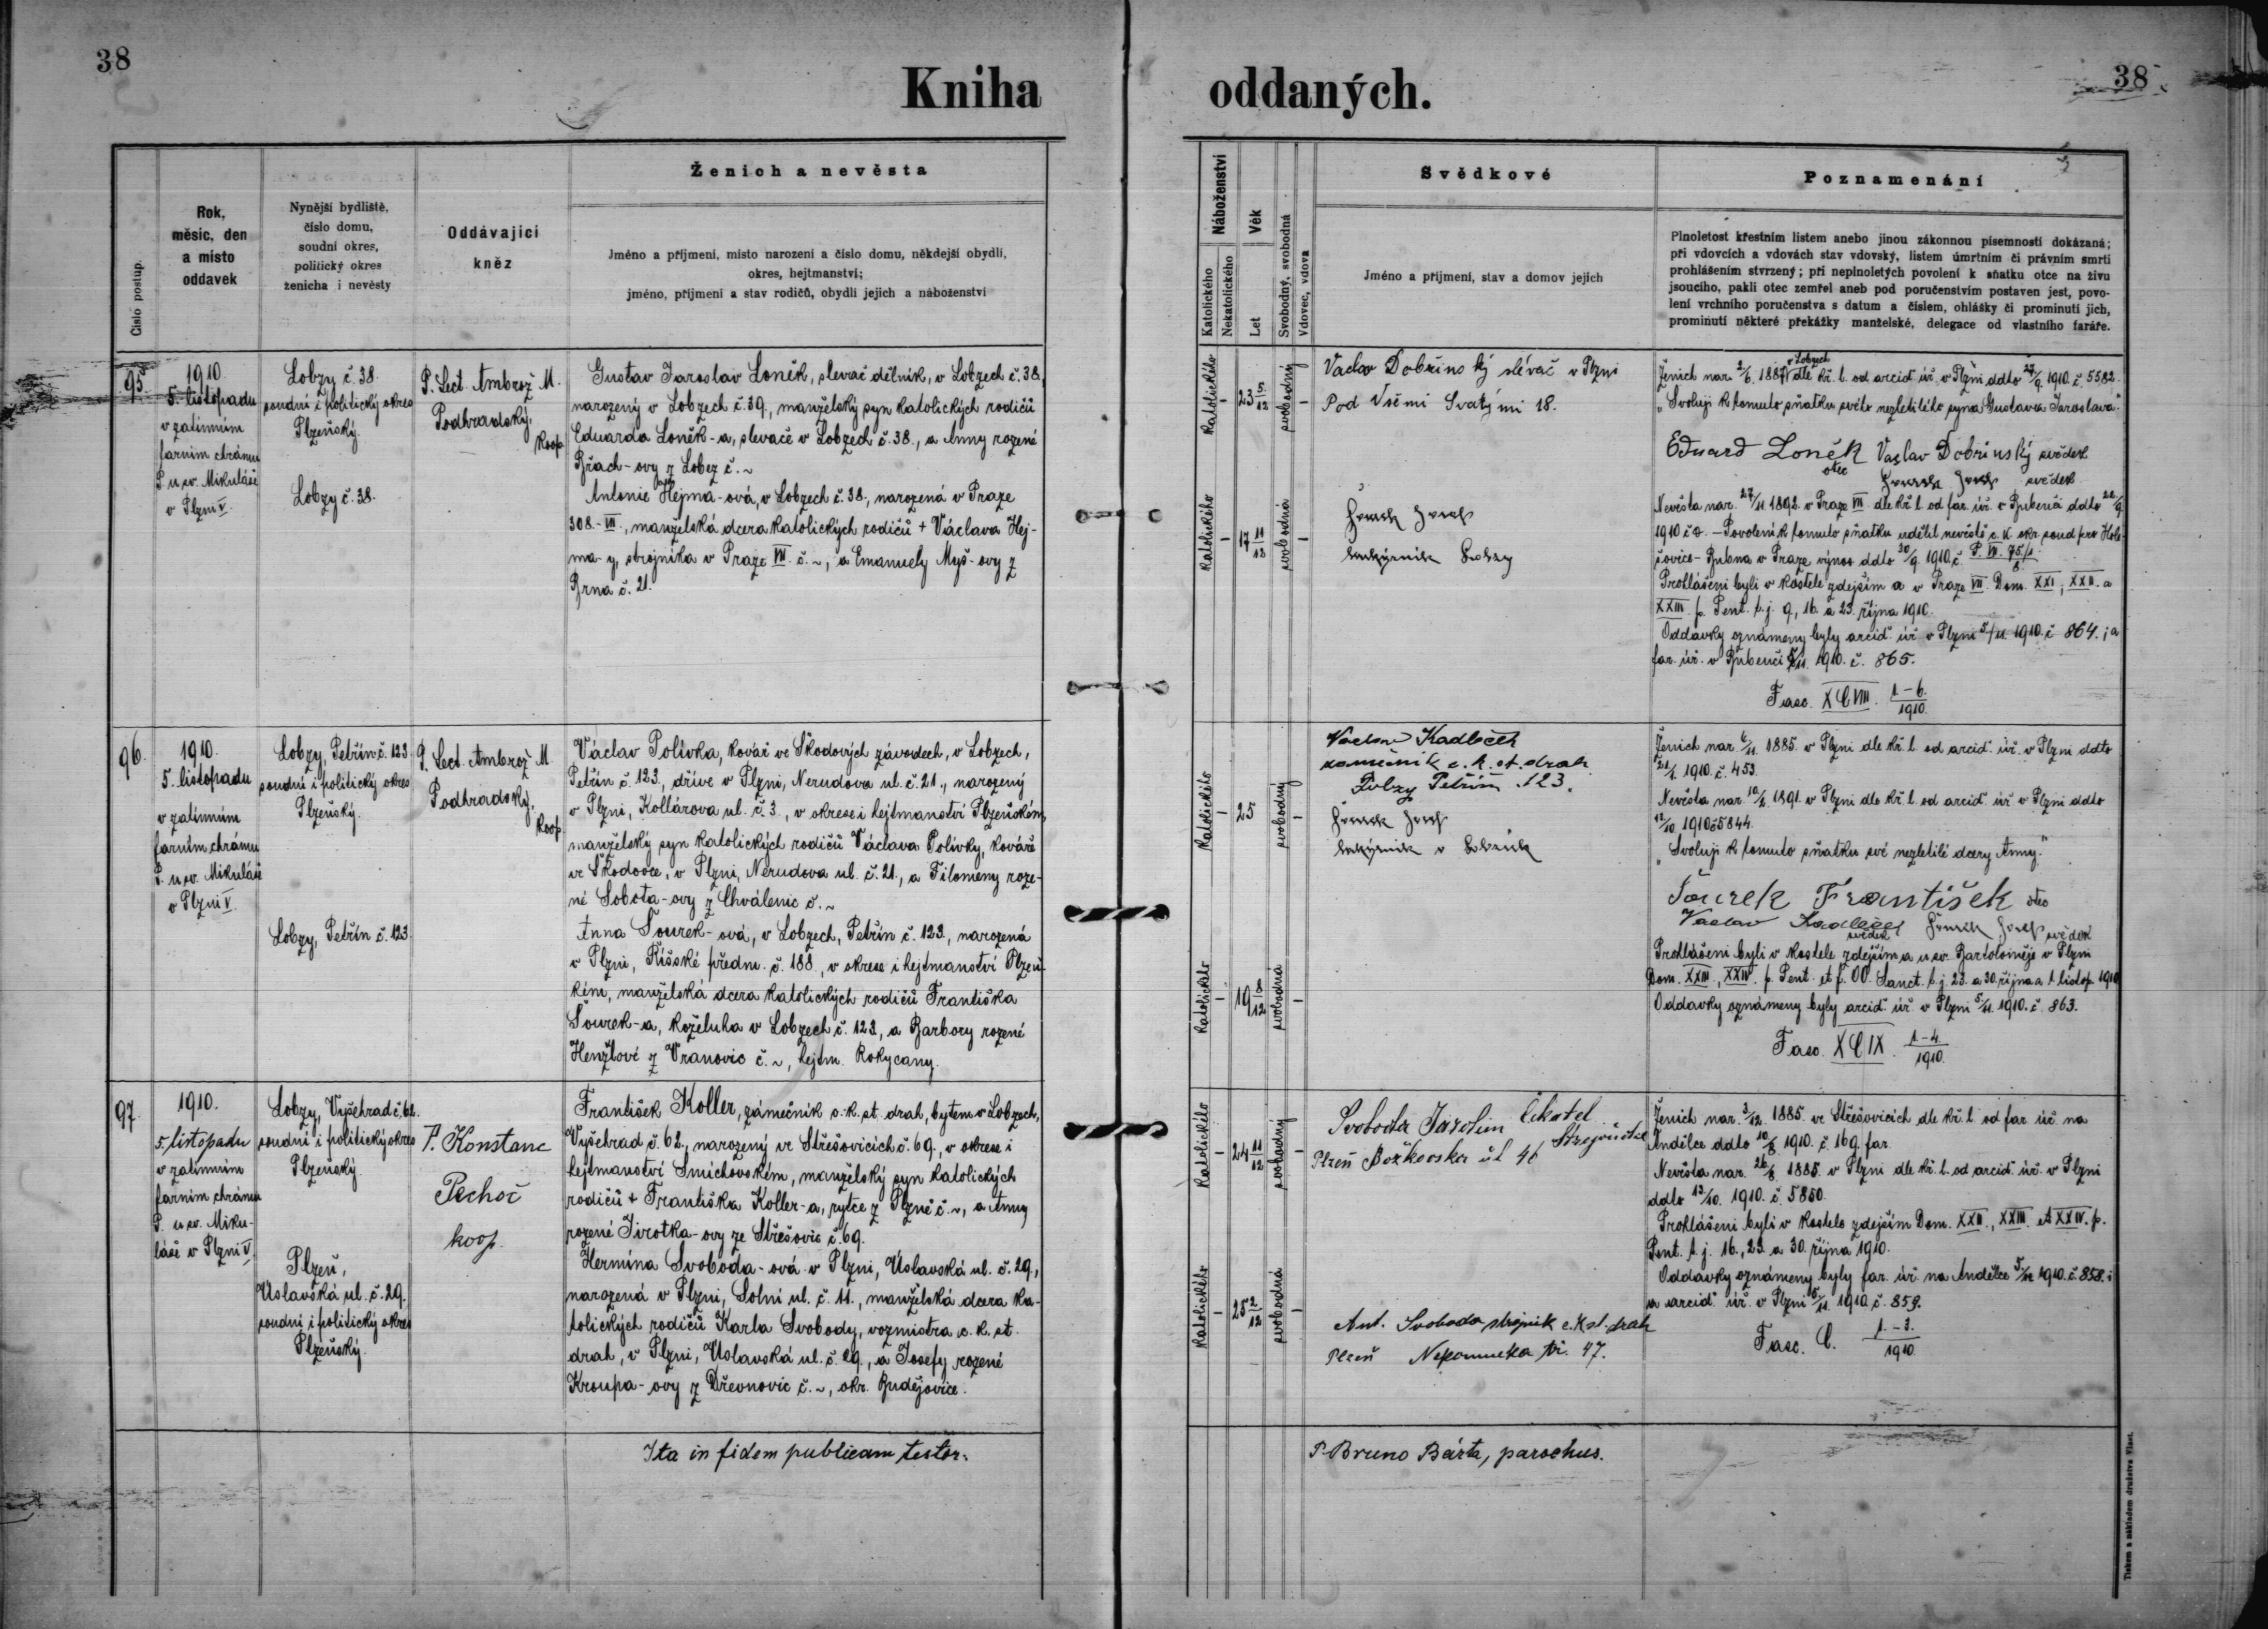 38
Kniha oddaných.
38
Číslo postup.
Rok,
měsíc, den
a místo
oddavek
Nynější bydliště,
číslo domu,
soudní okres,
politický okres
ženicha i nevěsty
Oddávající
kněz
Ženich a nevěsta
Jméno a příjmení, místo narození a číslo domu, někdejší obydlí,
okres, hejtmanství;
jméno, příjmení a stav rodičů, obydlí jejich a náboženství
Náboženství
Katolického
Nekatolického
Věk
Let
Svobodný, svobodná
Vdovec, vdova
Svědkové
Jméno a příjmení, stav a domov jejich
Poznamenání
Plnoletost křestním listem anebo jinou zákonnou písemností dokázaná;
při vdovcích a vdovách stav vdovský, listem úmrtním či právním smrti
prohlášením stvrzený; při neplnoletých povolení k sňatku otce na živu
jsoucího, pakli otec zemřel aneb pod poručenstvím postaven jest, povo-
lení vrchního poručenstva s datum a číslem, ohlášky či prominutí jich,
prominutí některé překážky manželské, delegace od vlastního faráře.
95.
1910.
5. listopadu
v zatímním
farním chrámu
P. u sv. Mikuláše
v Plzni V.
Lobzy č. 38.
soudní i politický okres
Plzeňský.
Lobzy č. 38.
P. Lect. Ambrož M.
Podhradský,
koop.
Gustav Jaroslav Loněk, slevač dělník, v Lobzech č. 38,
narozený v Lobzech č. 39., manželský syn katolických rodičů
Eduarda Loněk-a, slevače v Lobzech č. 38., a Anny rozené
Břach-ovy z Lobez č. ~
Antonie Hejma-ová, v Lobzech č. 38., narozená v Praze
308.-VII., manželská dcera katolických rodičů + Václava Hej-
ma-y, strojníka v Praze VII. č. ~, a Emanuely Myš-ovy z
Brna č. 21.
Katolického
-
23 5/12
svobodný
-
Katolického
-
17 11/12
svobodná
-
Vaclav Dobřinský slévač v Plzni
Pod Všemi Svatými 18.
Lobzy
Ženich nar. 2/6. 1887 v Lobzech dle kř. l. od arciď. úř. v Plzni ddto 27/9. 1910. č. 5582.
"Svoluji k tomuto sňatku svého nezletilého syna Gustava Jaroslava."
Eduard Loněk Vaclav Dobřinský svědek
otec
svědek
Nevěsta nar. 27/11. 1892. v Praze VII. dle kř. l. od far. úř. v Bubenči ddto 22/9.
1910 č. – Povolení k tomuto sňatku udělil nevěstě c. k. okr. soud pro Hole-
šovice-Bubna v Praze výnos ddto 30/9. 1910. č. P. VII. 75/1
Prohlášeni byli v kostele zdejším a v Praze VII Dom. XXI., XXII. a
XXIII. p. Pent. t. j. 9., 16. a 23. října 1910.
Oddavky oznámeny byly arciď. úř. v Plzni 5/11. 1910. č. 864. i a
far. úř. v Bubenči 5/11. 1910. č. 865.
Fasc. XCVIII. 1-6./1910.
96.
1910.
5. listopadu
v zatímním
farním chrámu
P. u sv. Mikuláše
v Plzni V.
Lobzy, Petřín č. 123
soudní i politický okres
Plzeňský.
Lobzy, Petřín č. 123.
P. Lect. Ambrož M.
Podhradský,
koop.
Václav Polívka, kovář ve Škodových závodech, v Lobzech,
Petřín č. 123., dříve v Plzni, Nerudova ul. č. 21., narozený
v Plzni, Kollárova ul. č. 3., v okrese i hejtmanství Plzeňském,
manželský syn katolických rodičů Václava Polívky, kováře
ve Škodovce, v Plzni, Nerudova ul. č. 21., a Filomeny roze-
né Sobota-ovy z Chválenic č. ~
Anna Šourek-ová, v Lobzech, Petřín č. 123., narozená
v Plzni, Říšské předm. č. 188., v okrese i hejtmanství Plzeň-
ském, manželská dcera katolických rodičů Františka
Šourek-a, koželuha v Lobzech č. 123, a Barbory rozené
Henžlové z Vranovic č. ~, hejtm. Rokycany.
Katolického
-
25
svobodný
-
Katolického
-
19 8/12
svobodná
-
Vaclav Kadleček
zamečnik c. k. st. drah
Lobzy Petřín 123.
Ženich nar. 6/11. 1885. v Plzni dle kř. l. od arciď. úř. v Plzni ddto
21/1. 1910. č. 453.
Nevěsta nar. 10/2. 1891. v Plzni dle kř. l. od arciď. úř. v Plzni ddto
12/10. 1910 č. 5844.
"Svoluji k tomuto sňatku své nezletilé dcery Anny."
Šourek František otec
Vaclav Kadleček
svědek
svědek
Prohlášeni byli v kostele zdejším a u sv. Bartoloměje v Plzni
Dom. XXIII., XXIV. p. Pent. et f. OO. Sanct. t. j. 23. a 30. října a 1. listop. 1910
Oddavky oznámeny byly arciď. úř. v Plzni 5/11. 1910. č. 863.
Fasc. XCIX. 1-4./1910.
97.
1910.
5. listopadu
v zatímním
farním chrámu
P. u sv. Miku-
láše v Plzni V.
Lobzy, Vyšehrad č. 62.
soudní i politický okres
Plzeňský.
Plzeň,
Úslavská ul. č. 29.
soudní i politický okres
Plzeňský.
P. Konstanc
Pechoč
koop.
František Koller, zámečník c. k. st. drah, bytem v Lobzech,
Vyšehrad č. 62., narozený ve Střešovicích č. 69., v okrese i
hejtmanství Smíchovském, manželský syn katolických
rodičů + Františka Koller-a, rytce z Plzně č. ~, a Anny
rozené Jirotka-ovy ze Střešovic č. 69.
Hermína Svoboda-ová v Plzni, Úslavská ul. č. 29.,
narozená v Plzni, Solní ul. č. 11., manželská dcera ka-
tolických rodičů Karla Svobody, vozmistra c. k. st.
drah, v Plzni, Úslavská ul. č. 29., a Josefy rozené
Kroupa-ovy z Dřevnovic č. ~, okr. Budějovice.
Katolického
-
24 11/12
svobodný
-
Katolického
-
25 2/12
svobodná
-
Svoboda Jarolim
Plzeň Božkovska ul 46
Ant. Svoboda strojník c. k. st. drah
Plzeň Nepomucka tř. 47.
Ženich nar. 3/12. 1885. ve Střešovicích dle kř. l. od far. úř. na
Andělce ddto 10/8. 1910. č. 169. far.
Nevěsta nar. 26/8. 1885. v Plzni dle kř. l. od arciď. úř. v Plzni
ddto 13/10. 1910. č. 5850.
Prohlášeni byli v kostele zdejším Dom. XXII., XXIII. et XXIV. p.
Pent. t. j. 16., 23. a 30. října 1910.
Oddavky oznámeny byly far. úř. na Andělce 5/11. 1910. č. 858. i
a arciď. úř. v Plzni 5/11. 1910. č. 859.
Fasc. C. 1.-3./1910.
Ita in fidem publicam testor.
P. Bruno Bárta, parochus.
Tiskem a nákladem družstva Vlast.